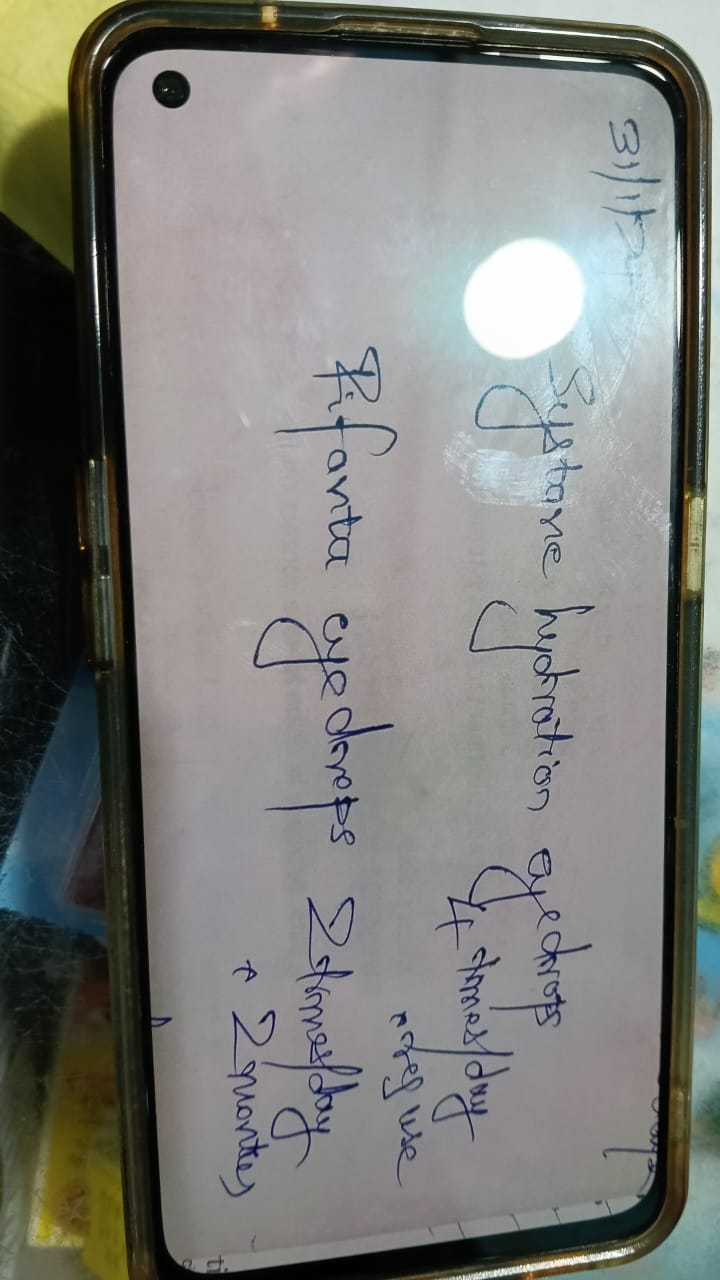 31/1/2
Systane hydration eyedrops
4 times/day
× reg use
Fifanta eyedrops 2 times/day
× 2 months